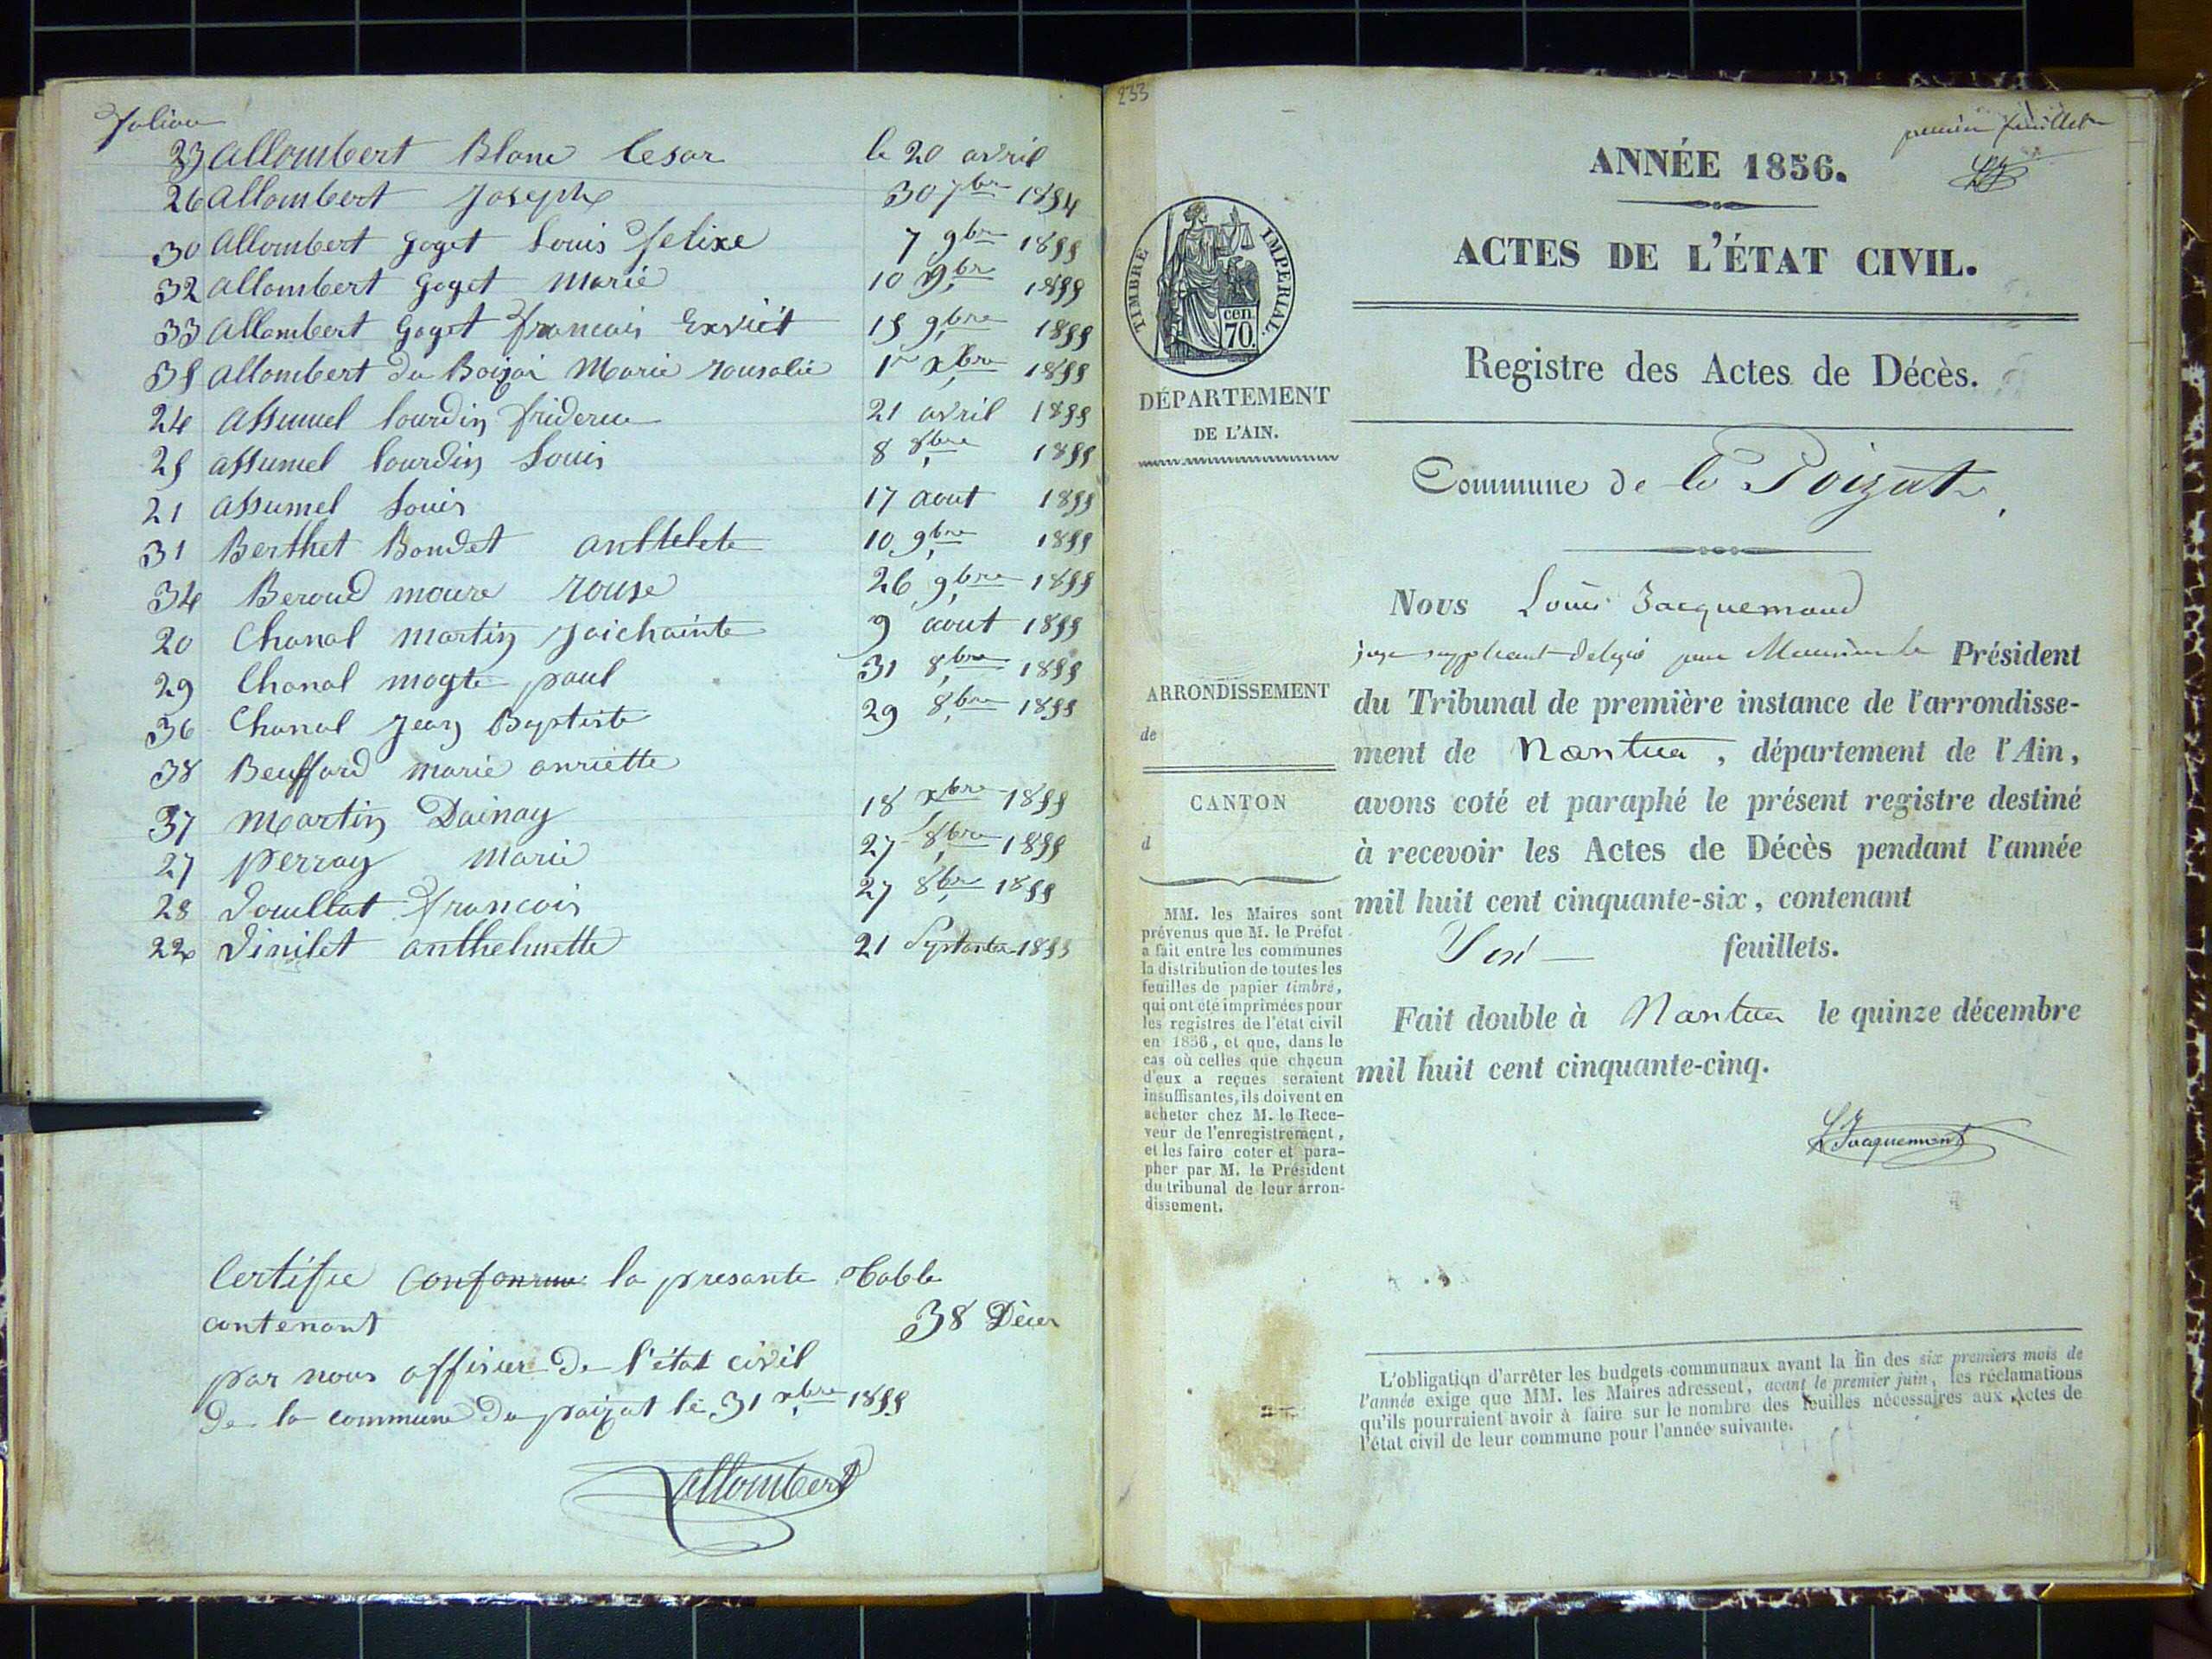 folion
23 allombert Blanc Cesar le 20 avril
26 allombert Joseph 30 7bre 1854
30 allombert goget Louis felixe 7 9bre 1855
32 allombert goget Marie 10 9bre 1855
33 allombert goget francois Exviet 15 9bre 1855
35 allombert du Boizai Marie rousalie 1er xbre 1855
24 assumel lourdin frideric 21 avril 1855
25 assumel lourdin Louis 8 8bre 1855
21 assumel Louis 17 aout 1855
31 Berthet Bondet 10 9bre 1855
34 Beroud moure rouse 26 9bre 1855
20 Chanal martin jaichainte 9 aout 1855
29 Chanal mogte paul 31 8bre 1855
36 Chanal Jean Baptiste 29 8bre 1855
38 Beuffard marie anriette
37 Martin Dainay 18 xbre 1855
27 perray Marie 27 8bre 1855
28 Jouillat francois 27 8bre 1855
22 Vinilet anthelmette 21 Septanbre 1855
Certifie conforme la presante Table
contenant 38 Déces
par nous affisier de l'état civil
de la commune du poizat le 31 xbre 1855
allombert
233
premier feuillet
ANNÉE 1856.
ACTES DE L'ÉTAT CIVIL.
Registre des Actes de Décès.
Commune de le Poizat
TIMBRE IMPERIAL.
cen.
70.
DÉPARTEMENT
DE L'AIN.
ARRONDISSEMENT
de
CANTON
d
MM. les Maires sont
prévenus que M. le Préfet
a fait entre les communes
la distribution de toutes les
feuilles de papier timbré,
qui ont été imprimées pour
les registres de l'état civil
en 1856, et que, dans le
cas où celles que chacun
d'eux a reçues seraient
insuffisantes, ils doivent en
acheter chez M. le Rece-
veur de l'enregistrement,
et les faire coter et para-
pher par M. le Président
du tribunal de leur arron-
dissement.
Nous Louis Jacquemoud
juge suppleant delegué par Monsieur le Président
du Tribunal de première instance de l'arrondisse-
ment de Nantua, département de l'Ain,
avons coté et paraphé le présent registre destiné
à recevoir les Actes de Décès pendant l'année
mil huit cent cinquante-six, contenant
feuillets.
Fait double à Nantua le quinze décembre
mil huit cent cinquante-cinq.
L Jacquemoud
L'obligation d'arrêter les budgets communaux avant la fin des six premiers mois de
l'année exige que MM. les Maires adressent, avant le premier juin, les réclamations
qu'ils pourraient avoir à faire sur le nombre des feuilles nécessaires aux Actes de
l'état civil de leur commune pour l'année suivante.